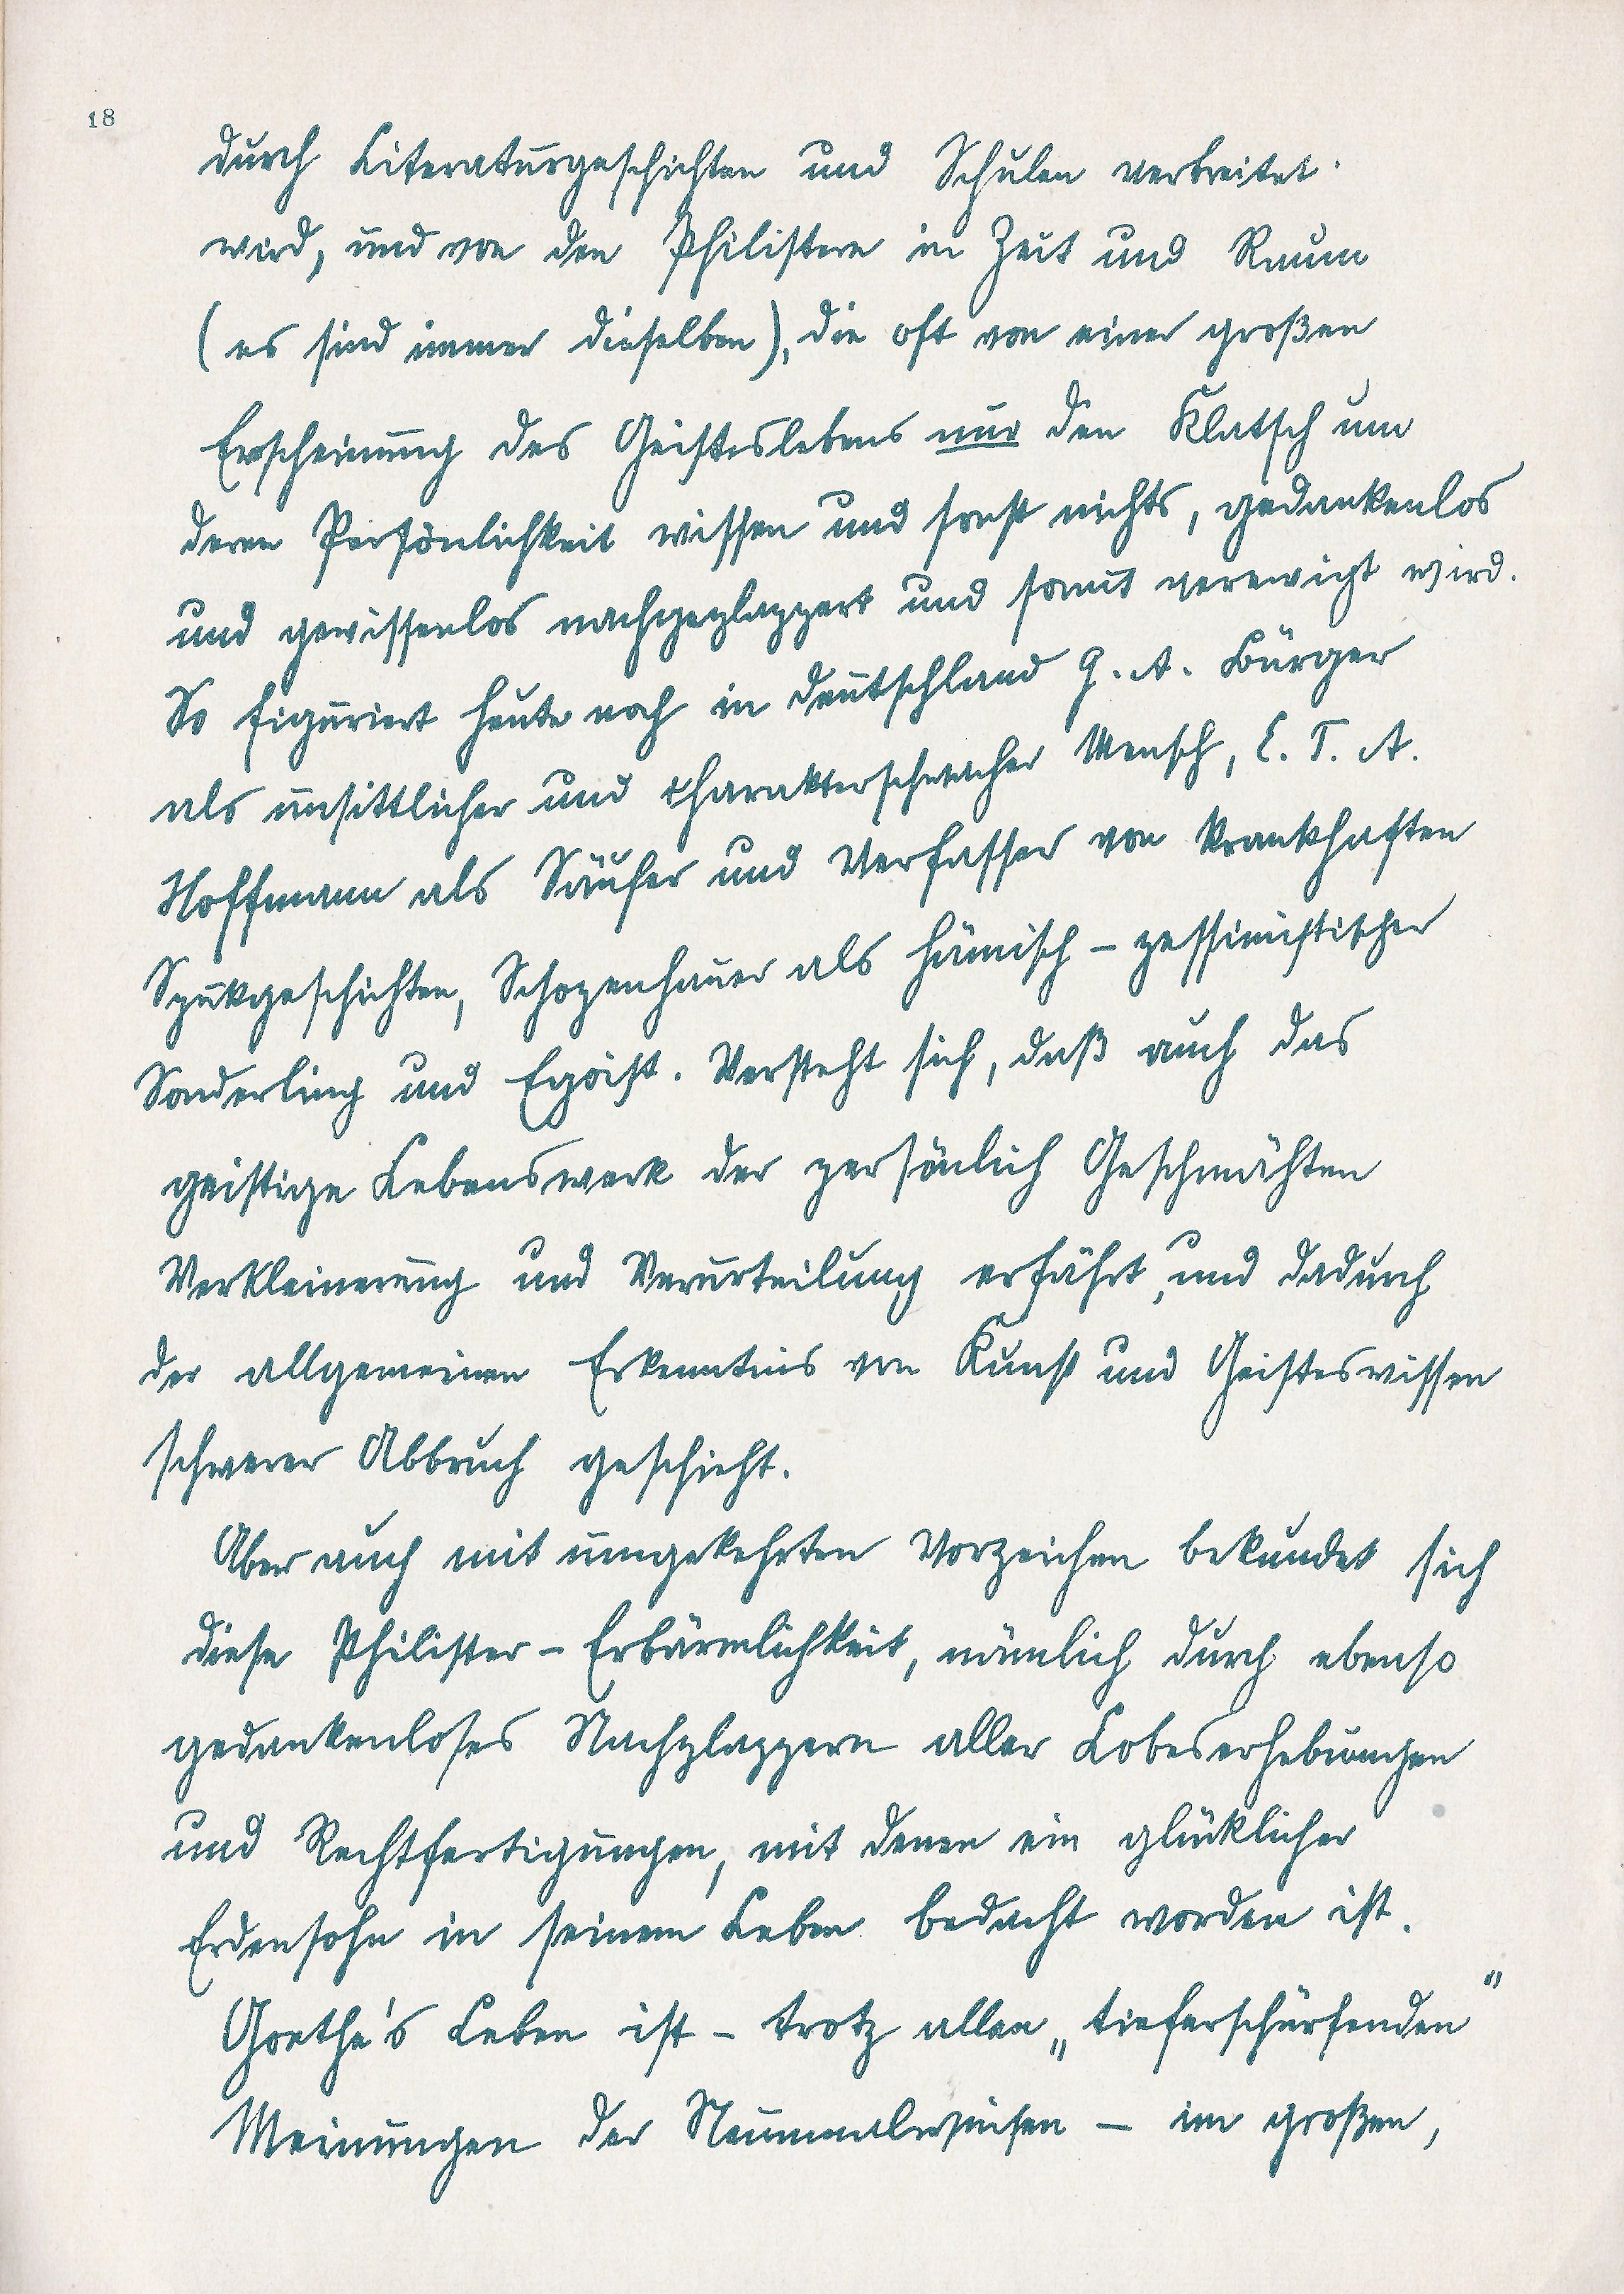 18
durch Literaturgeschichten und Schulen verbreitet
wird, und von den Philistern in Zeit und Raum
(es sind immer dieselben), die oft von einer großen
Erscheinung des Geisteslebens nur den Klatsch um
deren Persönlichkeit wissen und sonst nichts, gedankenlos
und gewissenlos nachgeplappert und somit verewigt wird.
So figuriert heute noch in Deutschland G. A. Bürger
als unsittlicher und charakterschwacher Mensch, E. T. A.
Hoffmann als Säufer und Verfasser von krankhaften
Spukgeschichten, Schopenhauer als hämisch-pessimistischer
Sonderling und Egoist. Versteht sich, daß auch das
geistige Lebenswerk der persönlich Geschmähten
Verkleinerung und Verurteilung erfährt, und dadurch
der allgemeinen Erkenntnis von Kunst und Geisteswissen
schwerer Abbruch geschieht.
Aber auch mit umgekehrten Vorzeichen bekundet sich
diese Philister-Erbärmlichkeit, nämlich durch ebenso
gedankenloses Nachplappern aller Lobeserhebungen
und Rechtfertigungen, mit denen ein glücklicher
Erdensohn in seinem Leben bedacht worden ist.
Goethe's Leben ist - trotz allen „tieferschürfenden"
Meinungen der Neunmalweisen - im großen,